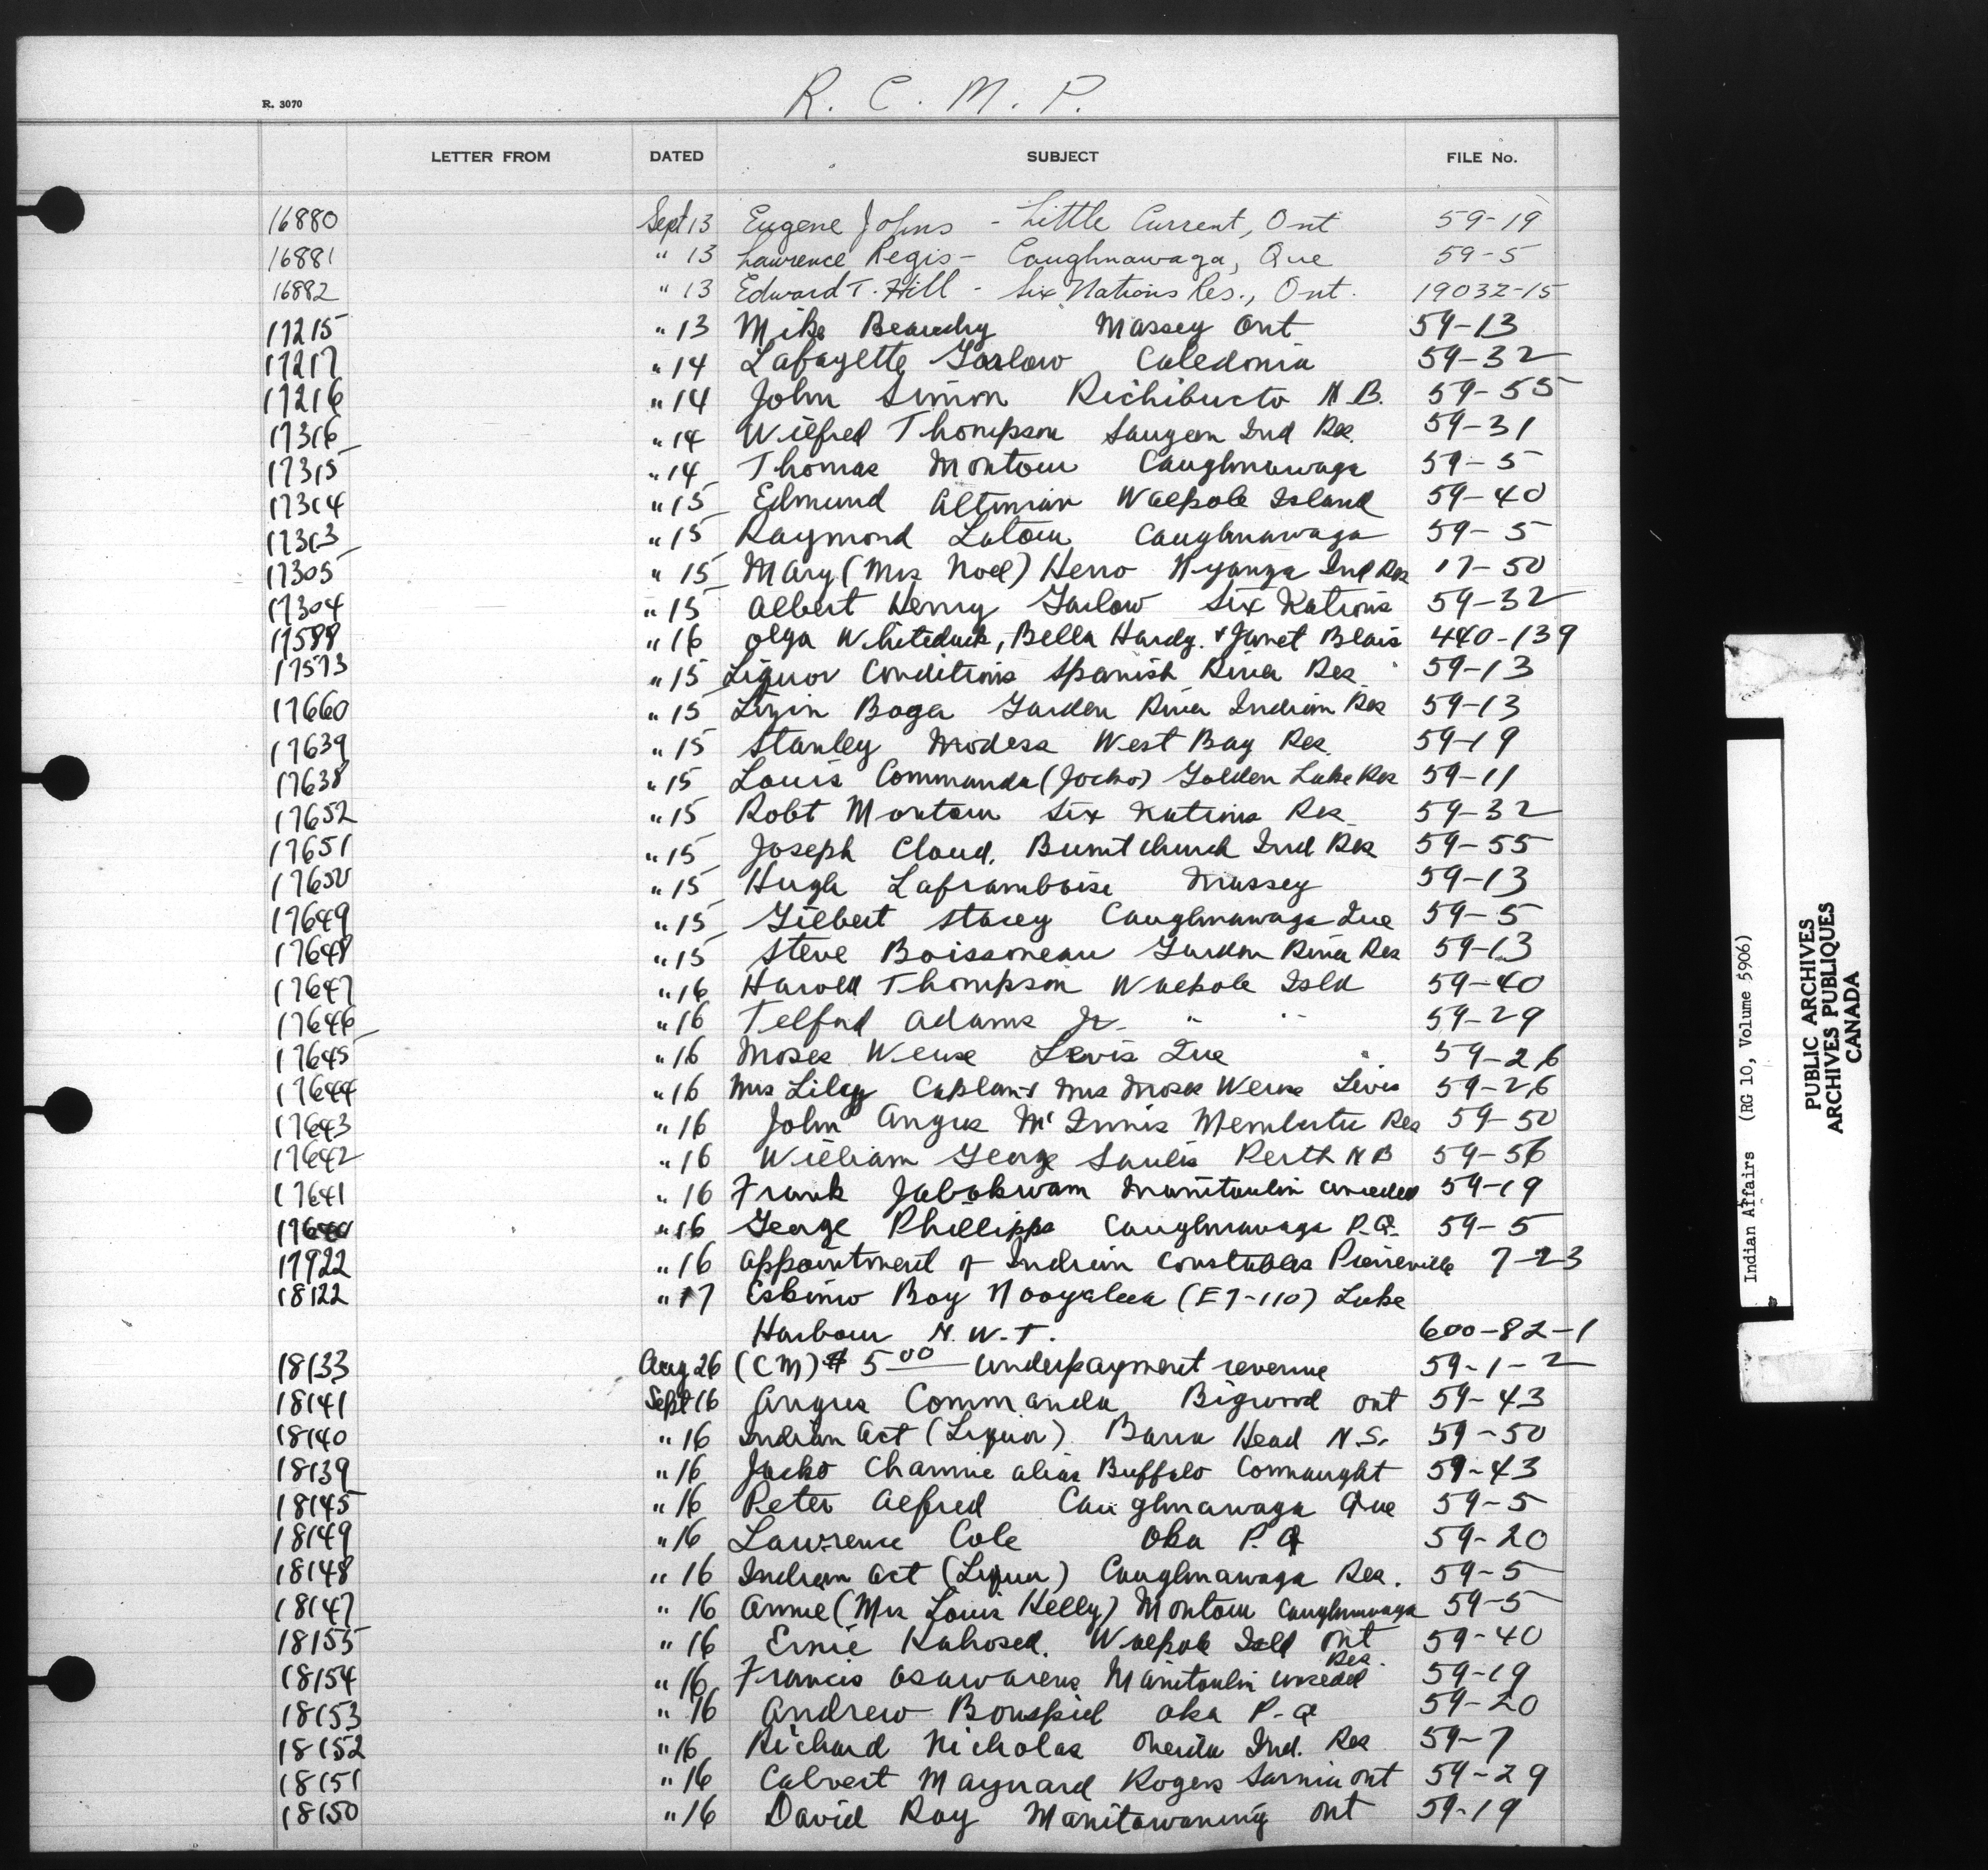 R. C. M. P.
R. 3070
LETTER FROM DATED SUBJECT FILE No.
16880 Sept 13 Eugene Johns - Little Current, Ont 59-19
16881 " 13 Lawrence Regis - Caughnawaga, Que 59-5
16882 " 13 Edward T. Hill - Six Nations Res., Ont. 19032-15
17215 " 13 Mike Beaudry Massey Ont 59-13
17217 " 14 Lafayette Garlow Caledonia 59-32
17216 " 14 John Simon Richibucto N.B. 59-55
17316 " 14 Wilfred Thompson Saugeen Ind Res. 59-31
17315 " 14 Thomas Montour Caughnawaga 59-5
17314 " 15 Edmund Altiman Walpole Island 59-40
17313 " 15 Raymond Latour Caughnawaga 59-5
17305 " 15 Mary (Mrs Noel) Herro Nyanza Ind Res 17-50
17304 " 15 Albert Henry Garlow Six Nations 59-32
17588 " 16 Olga Whiteduck, Bella Hardy. & Janet Blais 440-139
17573 " 15 Liquor Conditions Spanish River Res. 59-13
17660 " 15 Boga Garden River Indian Res 59-13
17639 " 15 Stanley Modess West Bay Res. 59-19
17638 " 15 Louis Commanda (Jocko) Golden Lake Res 59-11
17652 " 15 Robt Montour Six Nations Res. 59-32
17651 " 15 Joseph Cloud. Burnt Church Ind Res 59-55
17650 " 15 Hugh Laframboise Massey 59-13
17649 " 15 Gilbert Stacey Caughnawaga Que 59-5
17648 " 15 Steve Boissoneau Garden River Res 59-13
17647 " 16 Harold Thompson Walpole Isld 59-40
17646 " 16 Telford Adams Jr. " " 59-29
17645 " 16 Moses Levis Que 59-26
17644 " 16 Mrs Lily Caplan & Mrs Moses Levis 59-26
17643 " 16 John Angus McInnis Membertu Res 59-50
17642 " 16 William George Saulis Perth N B 59-56
17641 " 16 Frank Jabokwam Manitoulin unceded 59-19
17640 " 16 George Phillipps Caughnawaga P.Q. 59-5
17922 " 16 Appointment of Indian Constables Pierreville 7-23
18122 " 17 Eskimo Boy Nooyaleea (E7-110) Lake
Harbour N.W.T. 600-82-1
18133 Aug 26 (CM) $ 5 00 underpayment revenue 59-1-2
18141 Sept 16 Angus Commanda Bigwood Ont 59-43
18140 " 16 Indian Act (Liquor) Barra Head N.S. 59-50
18139 " 16 Jocko Charnie alias Buffalo Connaught 59-43
18145 " 16 Peter Alfred Caughnawaga Que 59-5
18149 " 16 Lawrence Cole Oka P.Q 59-20
18148 " 16 Indian Act (Liquor) Caughnawaga Res. 59-5
18147 " 16 Annie (Mrs Louis Kelly) Montour Caughnawaga 59-5
18155 " 16 Ernie Kahosed. Walpole Isld Ont 59-40
18154 " 16 Francis Osawarens Manitoulin unceded Res. 59-19
18153 " 16 Andrew Bonspiel Oka P.Q 59-20
18152 " 16 Richard Nicholas Oneida Ind. Res 59-7
18151 " 16 Calvert Maynard Rogers Sarnia Ont 59-29
18150 " 16 David Roy Manitowaning Ont 59-19
Indian Affairs (RG 10, Volume 5906)
PUBLIC ARCHIVES
ARCHIVES PUBLIQUES
CANADA